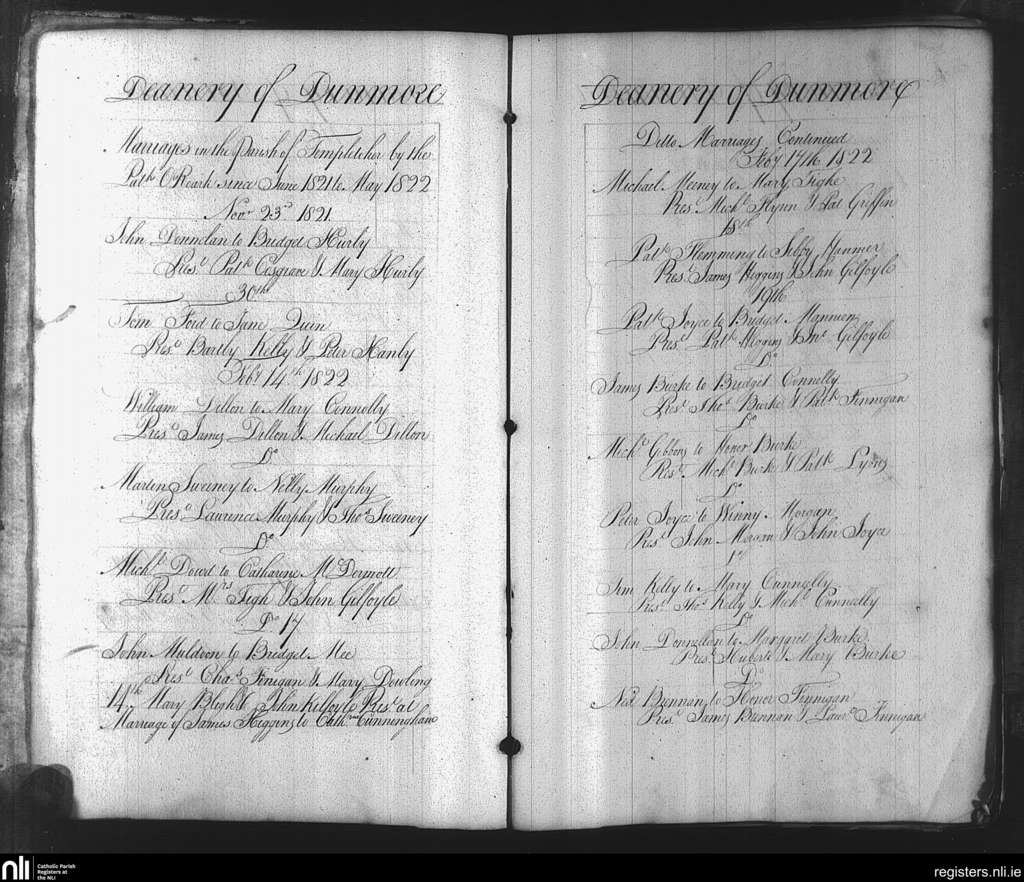 Deanery of Dunmore
Marriages in the Parish of Templetoher by the
Patk O'Roark since June 1821 to May 1822
Novr 23d 1821
John Donnolan to Bridget Hurly
Prest Patk Cosgrave & Mary Hurly
30th
Tom Ford to Jane Quin
Prest Bartly Kelly & Peter Hanly
Feby 14th 1822
William Dillon to Mary Connolly
Prest James Dillon & Michael Dillon
Do
Marten Sweeney to Nelly Murphy
Prest Lawrence Murphy & Thos Sweeney
Do
Michl Dowd to Catharine McDermott
Prest Mrs Tigh & John Gilfoyle
Do 17
John Muldoon to Bridget Mee
Prest Chas Finigan & Mary Dowling
14th Mary Blighe John Kilfoyle Prest at
Marriage of James Higgins to Cathne Cunningham
Deanery of Dunmore
Ditto Marriages Continued
Feby 17th 1822
Michael Meeney to Mary Tighe
Prest Michl Flynn & Pat Griffin
18th
Patk Flemming to Sibby Hanmer
Prest James Higgins & John Gilfoyle
19th
Patk Joyce to Bridget Mannien
Prest Patk Higgins & Jno Gilfoyle
Do
James Burke to Bridget Connelly
Prest Thos Burke & Patk Finnigan
Do
Michl Gibbons to Honor Burke
Prest Michl Burke & Patk Lyons
Do
Peter Joyce to Winny Morgan
Prest John Morgan & John Joyce
Do
Tim Kelly to Mary Cunnolly
Prest Thos Kelly & Michl Cunnolly
Do
John Donnellon to Margaret Burke
Prest Hubert & Mary Burke
Do
Ned Brennan to Honor Finnigan
Prest James Brennan & Lawce Finnigan
nli
Catholic Parish
Registers at
the NLI
registers.nli.ie